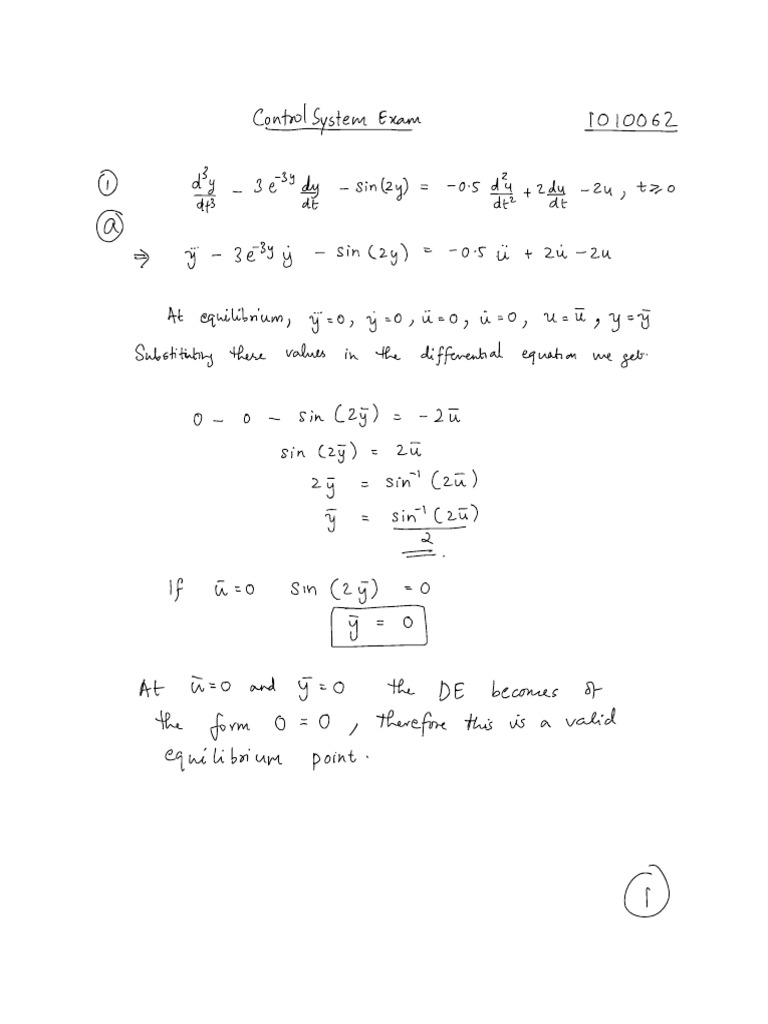 Control System Exam 1010062
① d³y/dt³ - 3e^-3y dy/dt - sin(2y) = -0.5 d²u/dt² + 2 du/dt - 2u, t≥0
ⓐ
⇒ y⃛ - 3e^-3y ẏ - sin(2y) = -0.5 ü + 2u̇ - 2u
At equilibrium, y⃛=0, ẏ=0, ü=0, u̇=0, u=ū, y=ȳ
Substituting these values in the differential equation we get.
0 - 0 - sin(2ȳ) = -2ū
sin(2ȳ) = 2ū
2ȳ = sin⁻¹(2ū)
ȳ = sin⁻¹(2ū)/2.
If ū=0 sin(2ȳ) = 0
ȳ = 0
At ū=0 and ȳ=0 the DE becomes of
the form 0 = 0, therefore this is a valid
equilibrium point.
①